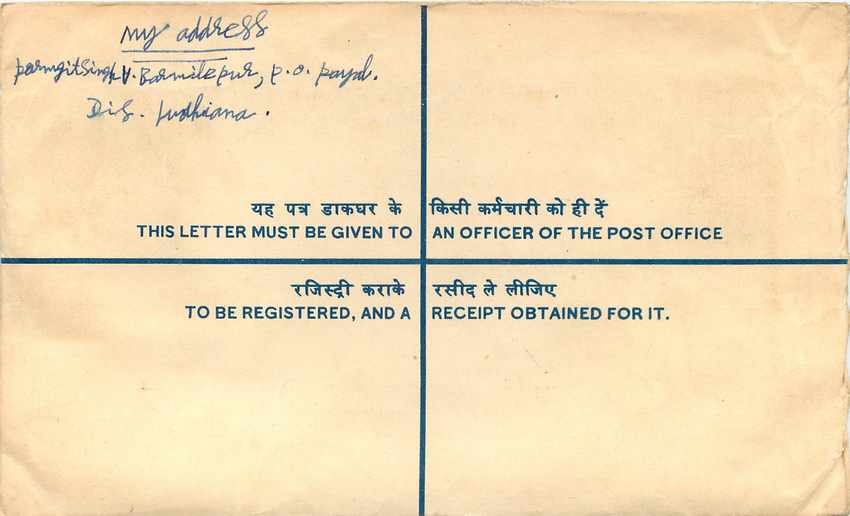 my address
parmgitsingh V. Barmilepur, p.o. payal.
Dis. Ludhiana.
यह पत्र डाकघर के किसी कर्मचारी को ही दें
THIS LETTER MUST BE GIVEN TO AN OFFICER OF THE POST OFFICE
रजिस्ट्री कराके रसीद ले लीजिए
TO BE REGISTERED, AND A RECEIPT OBTAINED FOR IT.